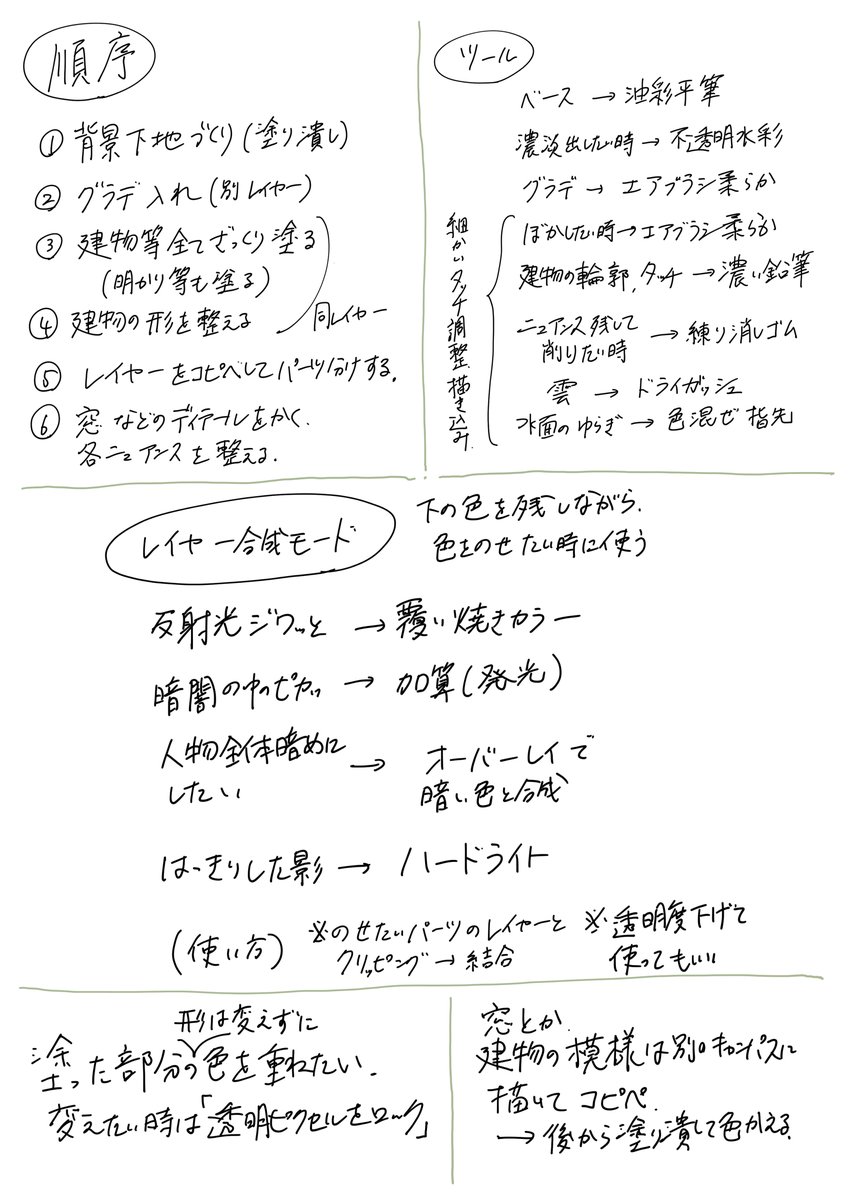 順序
① 背景下地づくり(塗り潰し)
② グラデ入れ(別レイヤー)
③ 建物等全てざっくり塗る
(明かり等も塗る)
④ 建物の形を整える
同レイヤー
⑤ レイヤーをコピペしてパーツ分けする。
⑥ 窓などのディテールをかく.
各ニュアンスを整える.
ツール
ベース → 油彩平筆
濃淡出したい時 → 不透明水彩
グラデ → エアブラシ柔らか
細かいタッチ調整、描き込み.
ぼかしたい時→エアブラシ柔らか
建物の輪郭,タッチ → 濃い鉛筆
ニュアンス残して
削りたい時 → 練り消しゴム
雲 → ドライガッシュ
水面のゆらぎ → 色混ぜ 指先
レイヤー合成モード
下の色を残しながら.
色をのせたい時に使う
反射光ジワッと → 覆い焼きカラー
暗闇の中のピカッ → 加算(発光)
人物全体暗めに
したい → オーバーレイで
暗い色と合成
はっきりした影 → ハードライト
(使い方)
※のせたいパーツのレイヤーと
クリッピング → 結合
※透明度下げて
使ってもいい
形は変えずに
塗った部分の色を重ねたい.
変えたい時は「透明ピクセルをロック」
窓とか.
建物の模様は別キャンバスに
描いてコピペ.
→ 後から塗り潰して色かえる.